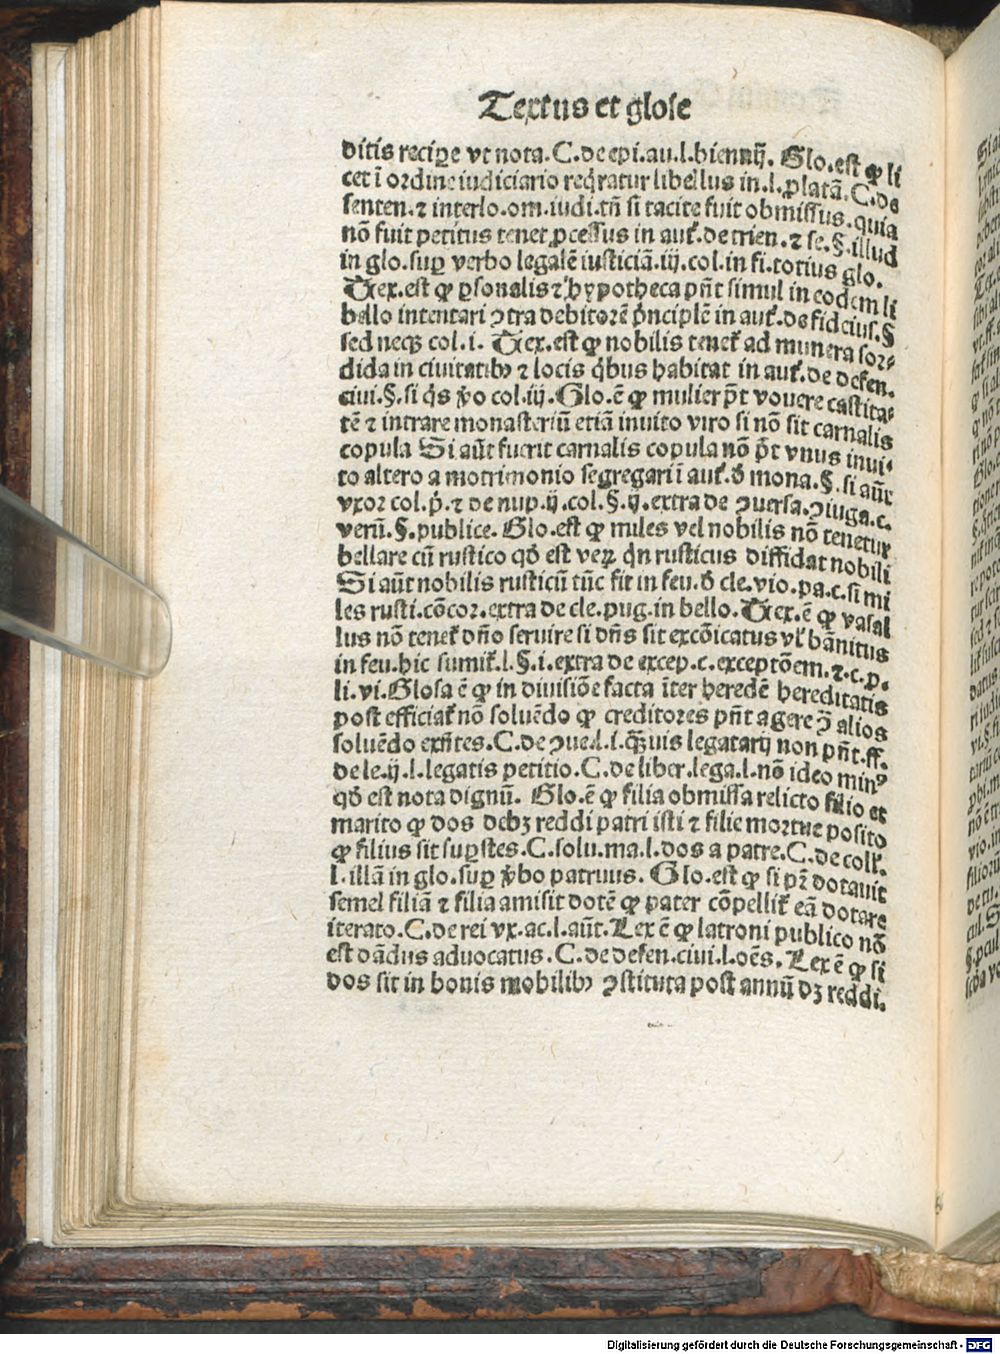 Textus et glose
ditis recipe vt nota. C. de epi. au. l. bienniĳ. Glo. est ꝙ li
cet ī ordine iudiciario reqͥratur libellus in. l. ꝓlatā. C. de
senten. ⁊ interlo. om. iudi. tn̄ si tacite fuit obmissus. quia
nō fuit petitus tenet ꝓcessus in autͭ. de trien. ⁊ se. §. illud
in glo. suꝑ verbo legalē iusticiā. iij. col. in fi. totius glo.
Tex. est ꝙ ꝑsonalis ⁊ hypotheca pn̄t simul in eodem li
bello intentari ꝯtra debitorē pͥnciplē in autͭ. de fideius. §
sed neqꝫ col. i. Tex. est ꝙ nobilis tenetͬ ad munera sor⸗
dida in ciuitatibꝰ ⁊ locis qͥbus habitat in autͭ. de defen.
ciui. §. si qͥs vͦo col. iij. Glo. ē ꝙ mulier pōt vouere castita⸗
tē ⁊ intrare monasteriū etiā inuito viro si nō sit carnalis
copula Si aūt fuerit carnalis copula nō pōt vnus inui⸗
to altero a motrimonio segregari ī autͭ. d̄ mona. §. si aūt
vxor col. pͥ. ⁊ de nup. ij. col. §. ij. extra de ꝯuersa. ꝯiuga. c.
verū. §. publice. Glo. est ꝙ miles vel nobilis nō tenetur
bellare cū rustico qd̄ est veꝝ qn̄ rusticus diffidat nobili
Si aūt nobilis rusticū tūc fit in feu. d̄ cle. vio. pa. c. si mi
les rusti. cōcor. extra de cle. pug. in bello. Tex. ē ꝙ vasal
lus nō tenetͬ dn̄o seruire si dn̄s sit excōicatus vl̓ bānitus
in feu. hic sumitͬ. l. §. i. extra de excep. c. exceptōem. ⁊. c. p.
li. vi. Glosa ē ꝙ in diuisiōe facta īter heredē hereditatis
post efficiatͬ nō soluēdo ꝙ creditores pn̄t agere ꝯ̄ alios
soluēdo exn̄tes. C. de ꝯue. l. i. qͣ̄uis legatarij non pn̄t. ff.
de le. ij. l. legatis petitio. C. de liber. lega. l. nō ideo minꝰ
qd̄ est nota dignū. Glo. ē ꝙ filia obmissa relicto filio et
marito ꝙ dos debꝫ reddi patri isti ⁊ filie mortue posito
ꝙ filius sit suꝑstes. C. solu. ma. l. dos a patre. C. de coll̓.
l. illā in glo. suꝑ vͦbo patruus. Glo. est ꝙ si pr̄ dotauit
semel filiā ⁊ filia amisit dotē ꝙ pater cōpellitͬ eā dotare
iterato. C. de rei vx. ac. l. aūt. Lex ē ꝙ latroni publico nō
est dādus aduocatus. C. de defen. ciui. l. oēs. Lex ē ꝙ si
dos sit in bonis mobilibꝰ ꝯstituta post annū dꝫ reddi.
Digitalisierung gefördert durch die Deutsche Forschungsgemeinschaft - DFG